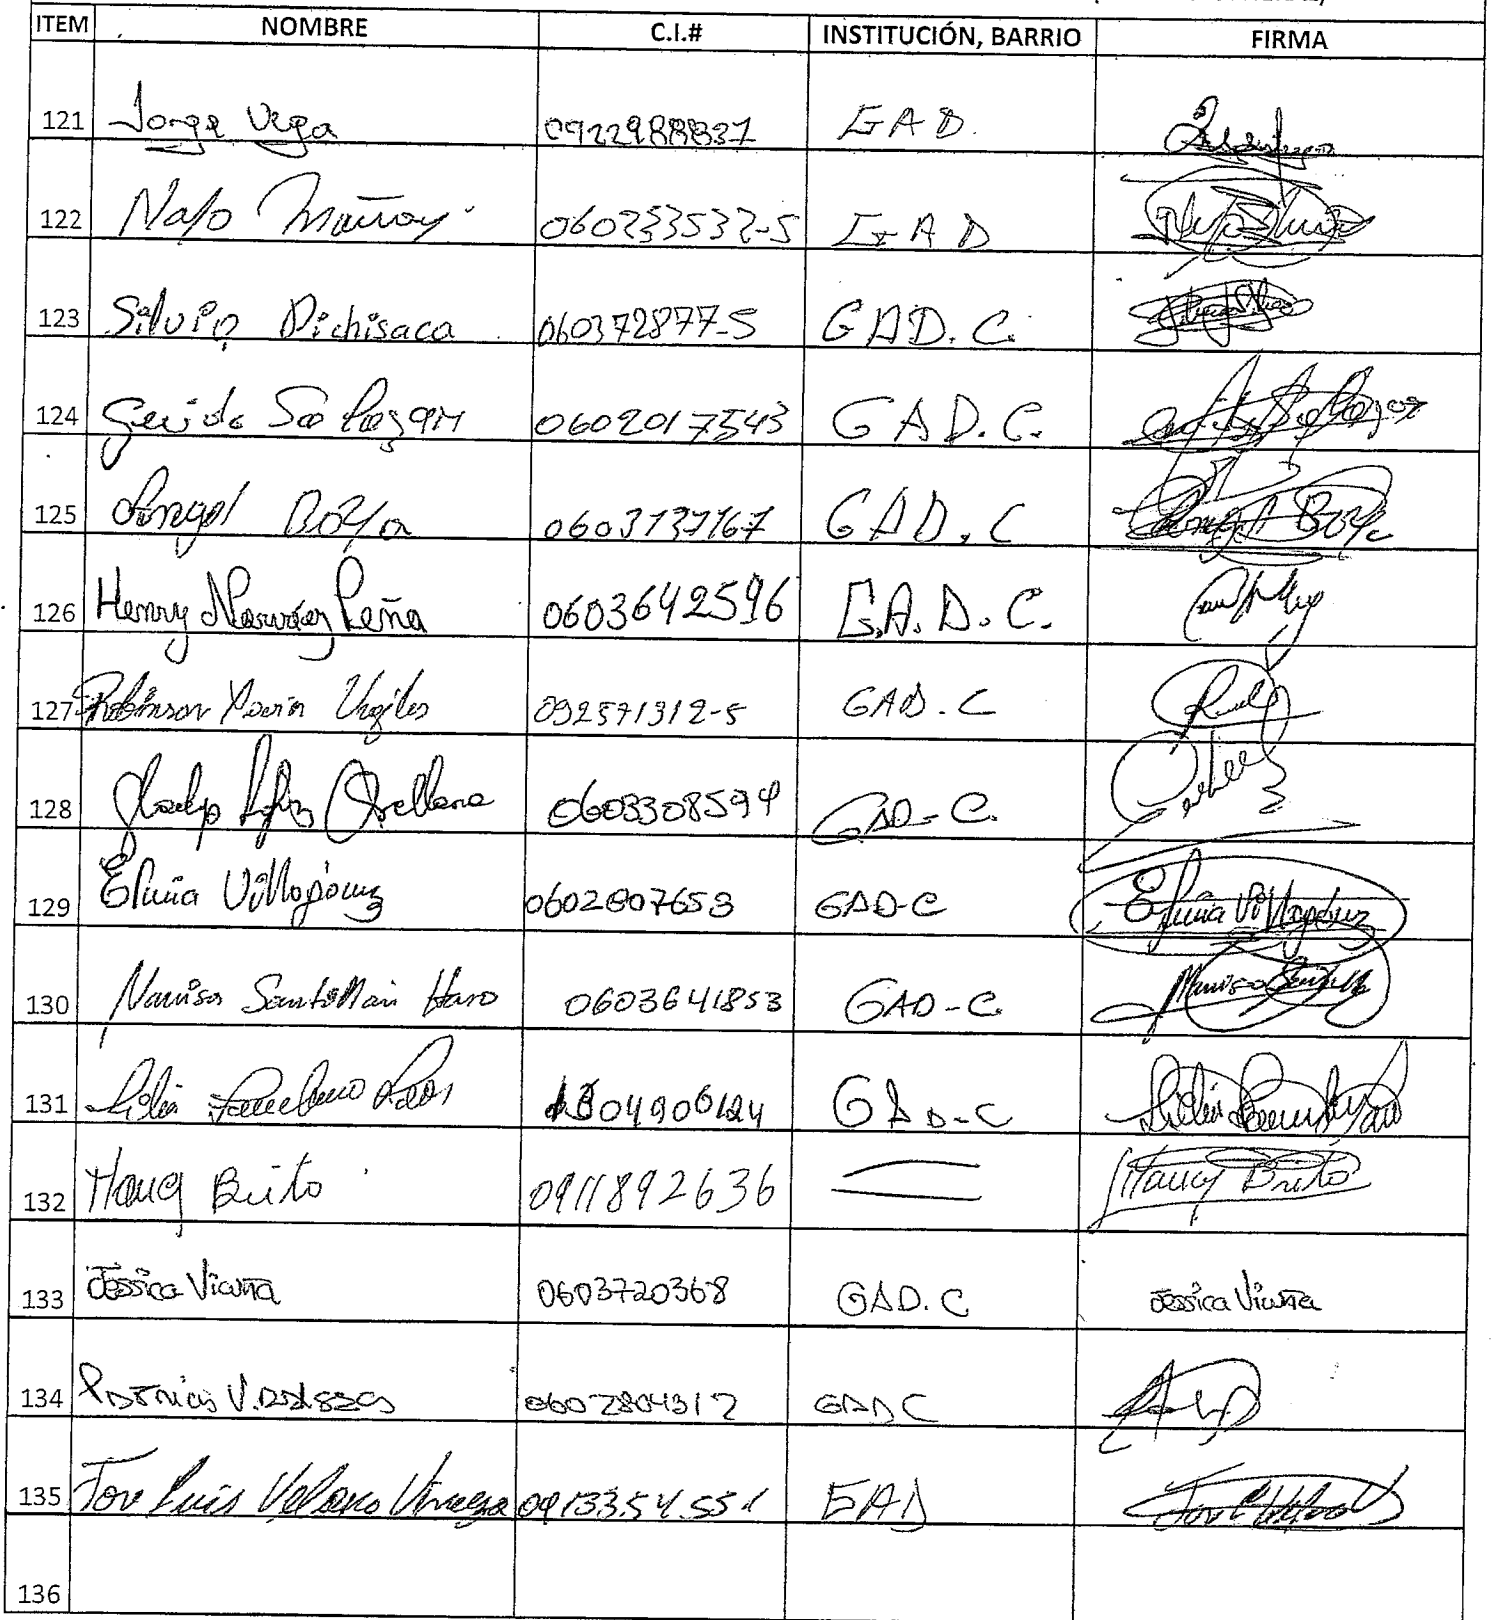 ITEM NOMBRE C.I.# INSTITUCIÓN, BARRIO FIRMA
121 Jorge Vega 0922988837 GAD.
122 Napo Muñoz 060233532-5 GAD
123 Silvio Pichisaca 060372877-5 GAD.C.
124 Guido Salazar 0602017543 GAD.C.
125 Angel Boya 0603737167 GAD.C Angel
126 Henry Narváez Peña 0603642596 G.A.D.C.
127 Robinson Vigiles 092571312-5 GAD.C
128 Gladys Orellana 0603308594 GAD-C.
129 Elvira Villagómez 0602807653 GAD-C Elvira Villagómez
130 Narcisa Santillan Haro 0603641853 GAD-C Narcisa
131 Lidia 1304906124 GAD-C Lidia
132 Nancy Brito 0911892636 Nancy Brito
133 Jessica Vicuña 0603720368 GAD.C Jessica Vicuña
134 Patricio 0602804312 GADC
135 Jose Luis Velasco 0913354551 GAD
136